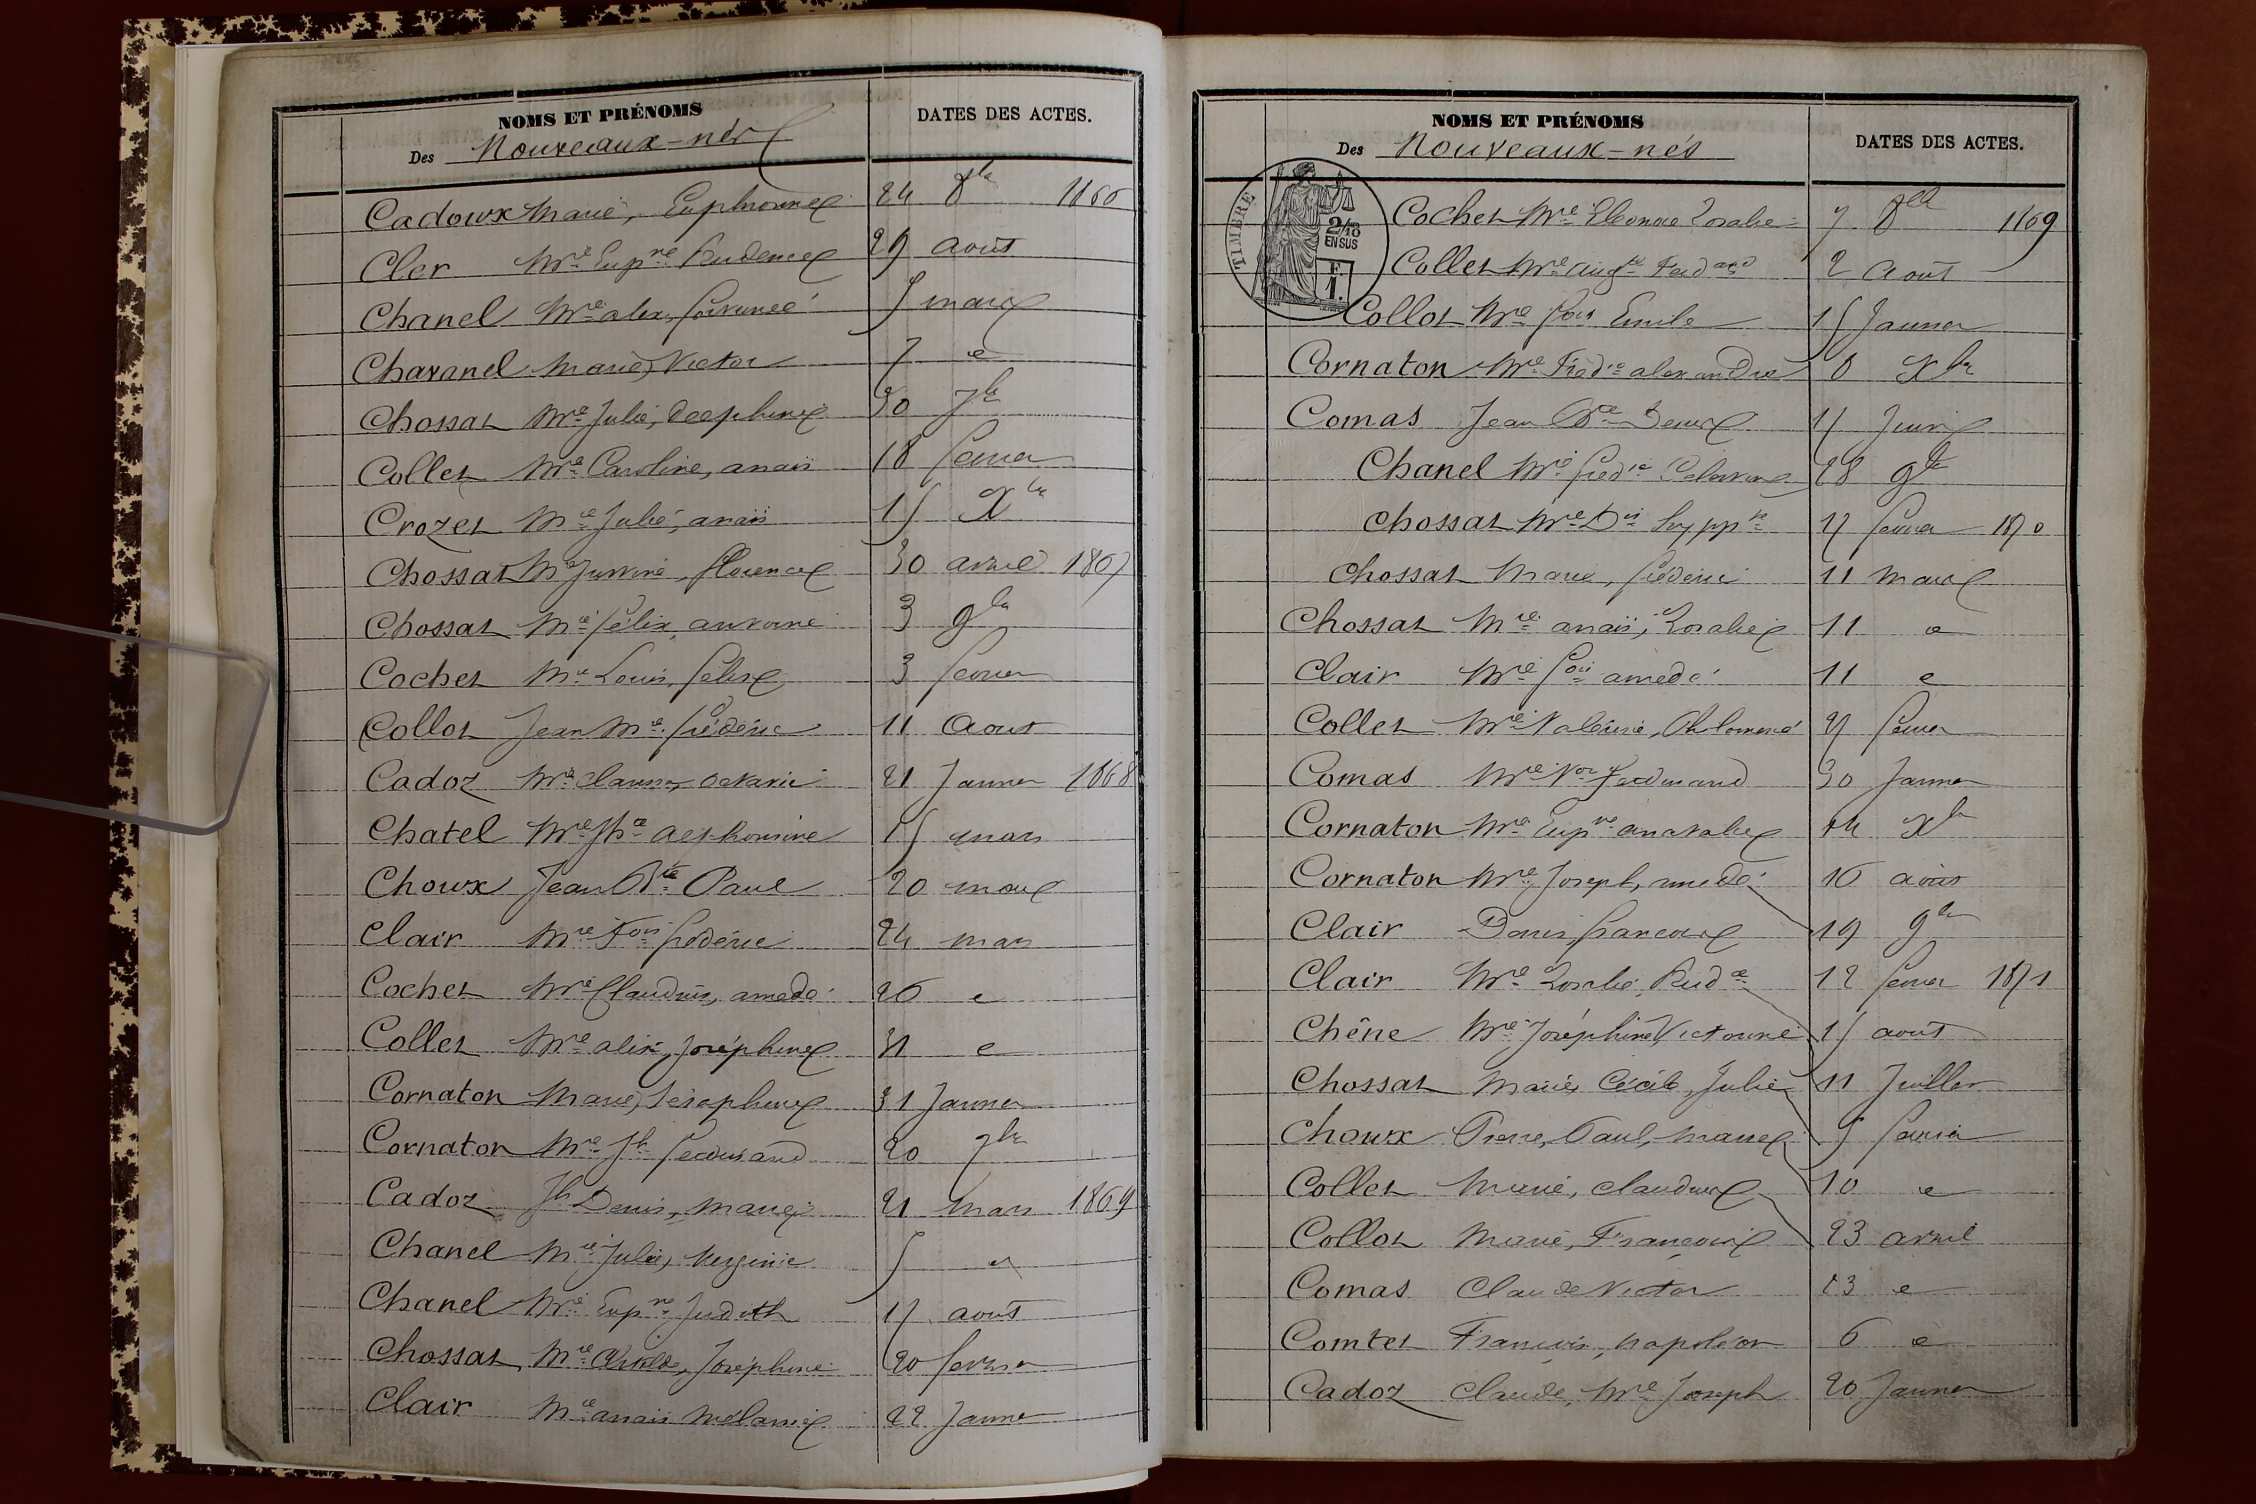 NOMS ET PRÉNOMS
Des Nouveaux-nés
DATES DES ACTES.
Cadoux Marie, Euphrosine 24 8bre 1866
Cler Mie Eupne Prudence 29 août
Chanel Mie alex 5 mars
Charanel Marie, Victor 7 e
Chossat Mie Julie, Delphine 30 7bre
Collet Mie Caroline, anaïs 18 février
Crozet Mie Julie, anaïs 15 Xbre
Chossat Mie Justine, florence 30 avril 1867
Chossat Mie félix, antoine 3 9bre
Cochet Mie Louis, félix 3 février
Collot Jean Mie frédéric 11 Aout
Cadoz Mie octavie 21 Janvier 1868
Chatel Mie Alphonsine 15 mars
Choux Jean Bte Paul 20 mars
Clair Mie Fois frédéric 24 mars
Cochet Mie Claudius, amédé 26 e
Collet Mie alix, Joséphine 31 e
Cornaton Marie, Séraphine 31 Janvier
Cornaton Mie Jh ferdinand 20 7bre
Cadoz Jh Denis, marie 21 Mars 1869
Chanel Mie Julie, Virginie 5 e
Chanel Mie Eupne Judith 17 août
Chossat Mie Clotilde, Joséphine 20 février
Clair Mie anaïs Mélanie 22 Janvier
NOMS ET PRÉNOMS
Des Nouveaux-nés
DATES DES ACTES.
TIMBRE
2/10
EN SUS
F.
1.
Cochet Mie Eléonore Rosalie 7 8bre 1869
Collet Mie Augte 2 Août
Collot Mie fois Emile 15 Janvier
Cornaton Mie Frédic alexandre 8 Xbre
Comas Jean Bte Denis
Chanel Mie frédic 28 9bre
Chossat Mie Dis hyppte 17 février 1870
Chossat Marie, frédéric 11 mars
Chossat Mie anaïs, Rosalie 11 e
Clair Mie fois amédé 11 e
Collet Mie Valérie, Philomène 27 février
Comas Mie Vor ferdinand 30 Janvier
Cornaton Mie Eupne anathalie 14 Xbre
Cornaton Mie Joseph, amédé 16 août
Clair Denis françois 19 9bre
Clair Mie Rosalie, Prudce 12 février 1871
Chêne Mie Joséphine Victorine 15 août
Chossat Marie, Cécile, Julie 11 Juillet
Choux Pierre, Paul, marie 5 février
Collet Marie, claudine 10 e
Collot Marie, Françoise 23 avril
Comas Claude Victor 23 e
Comtet François, napoléon 6 e
Cadoz Claude, Mie Joseph 20 Janvier